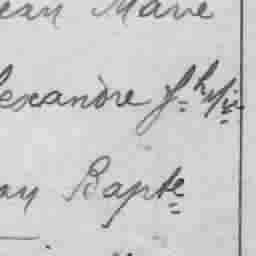 ean Marie
lexandre Jh
an Bapte